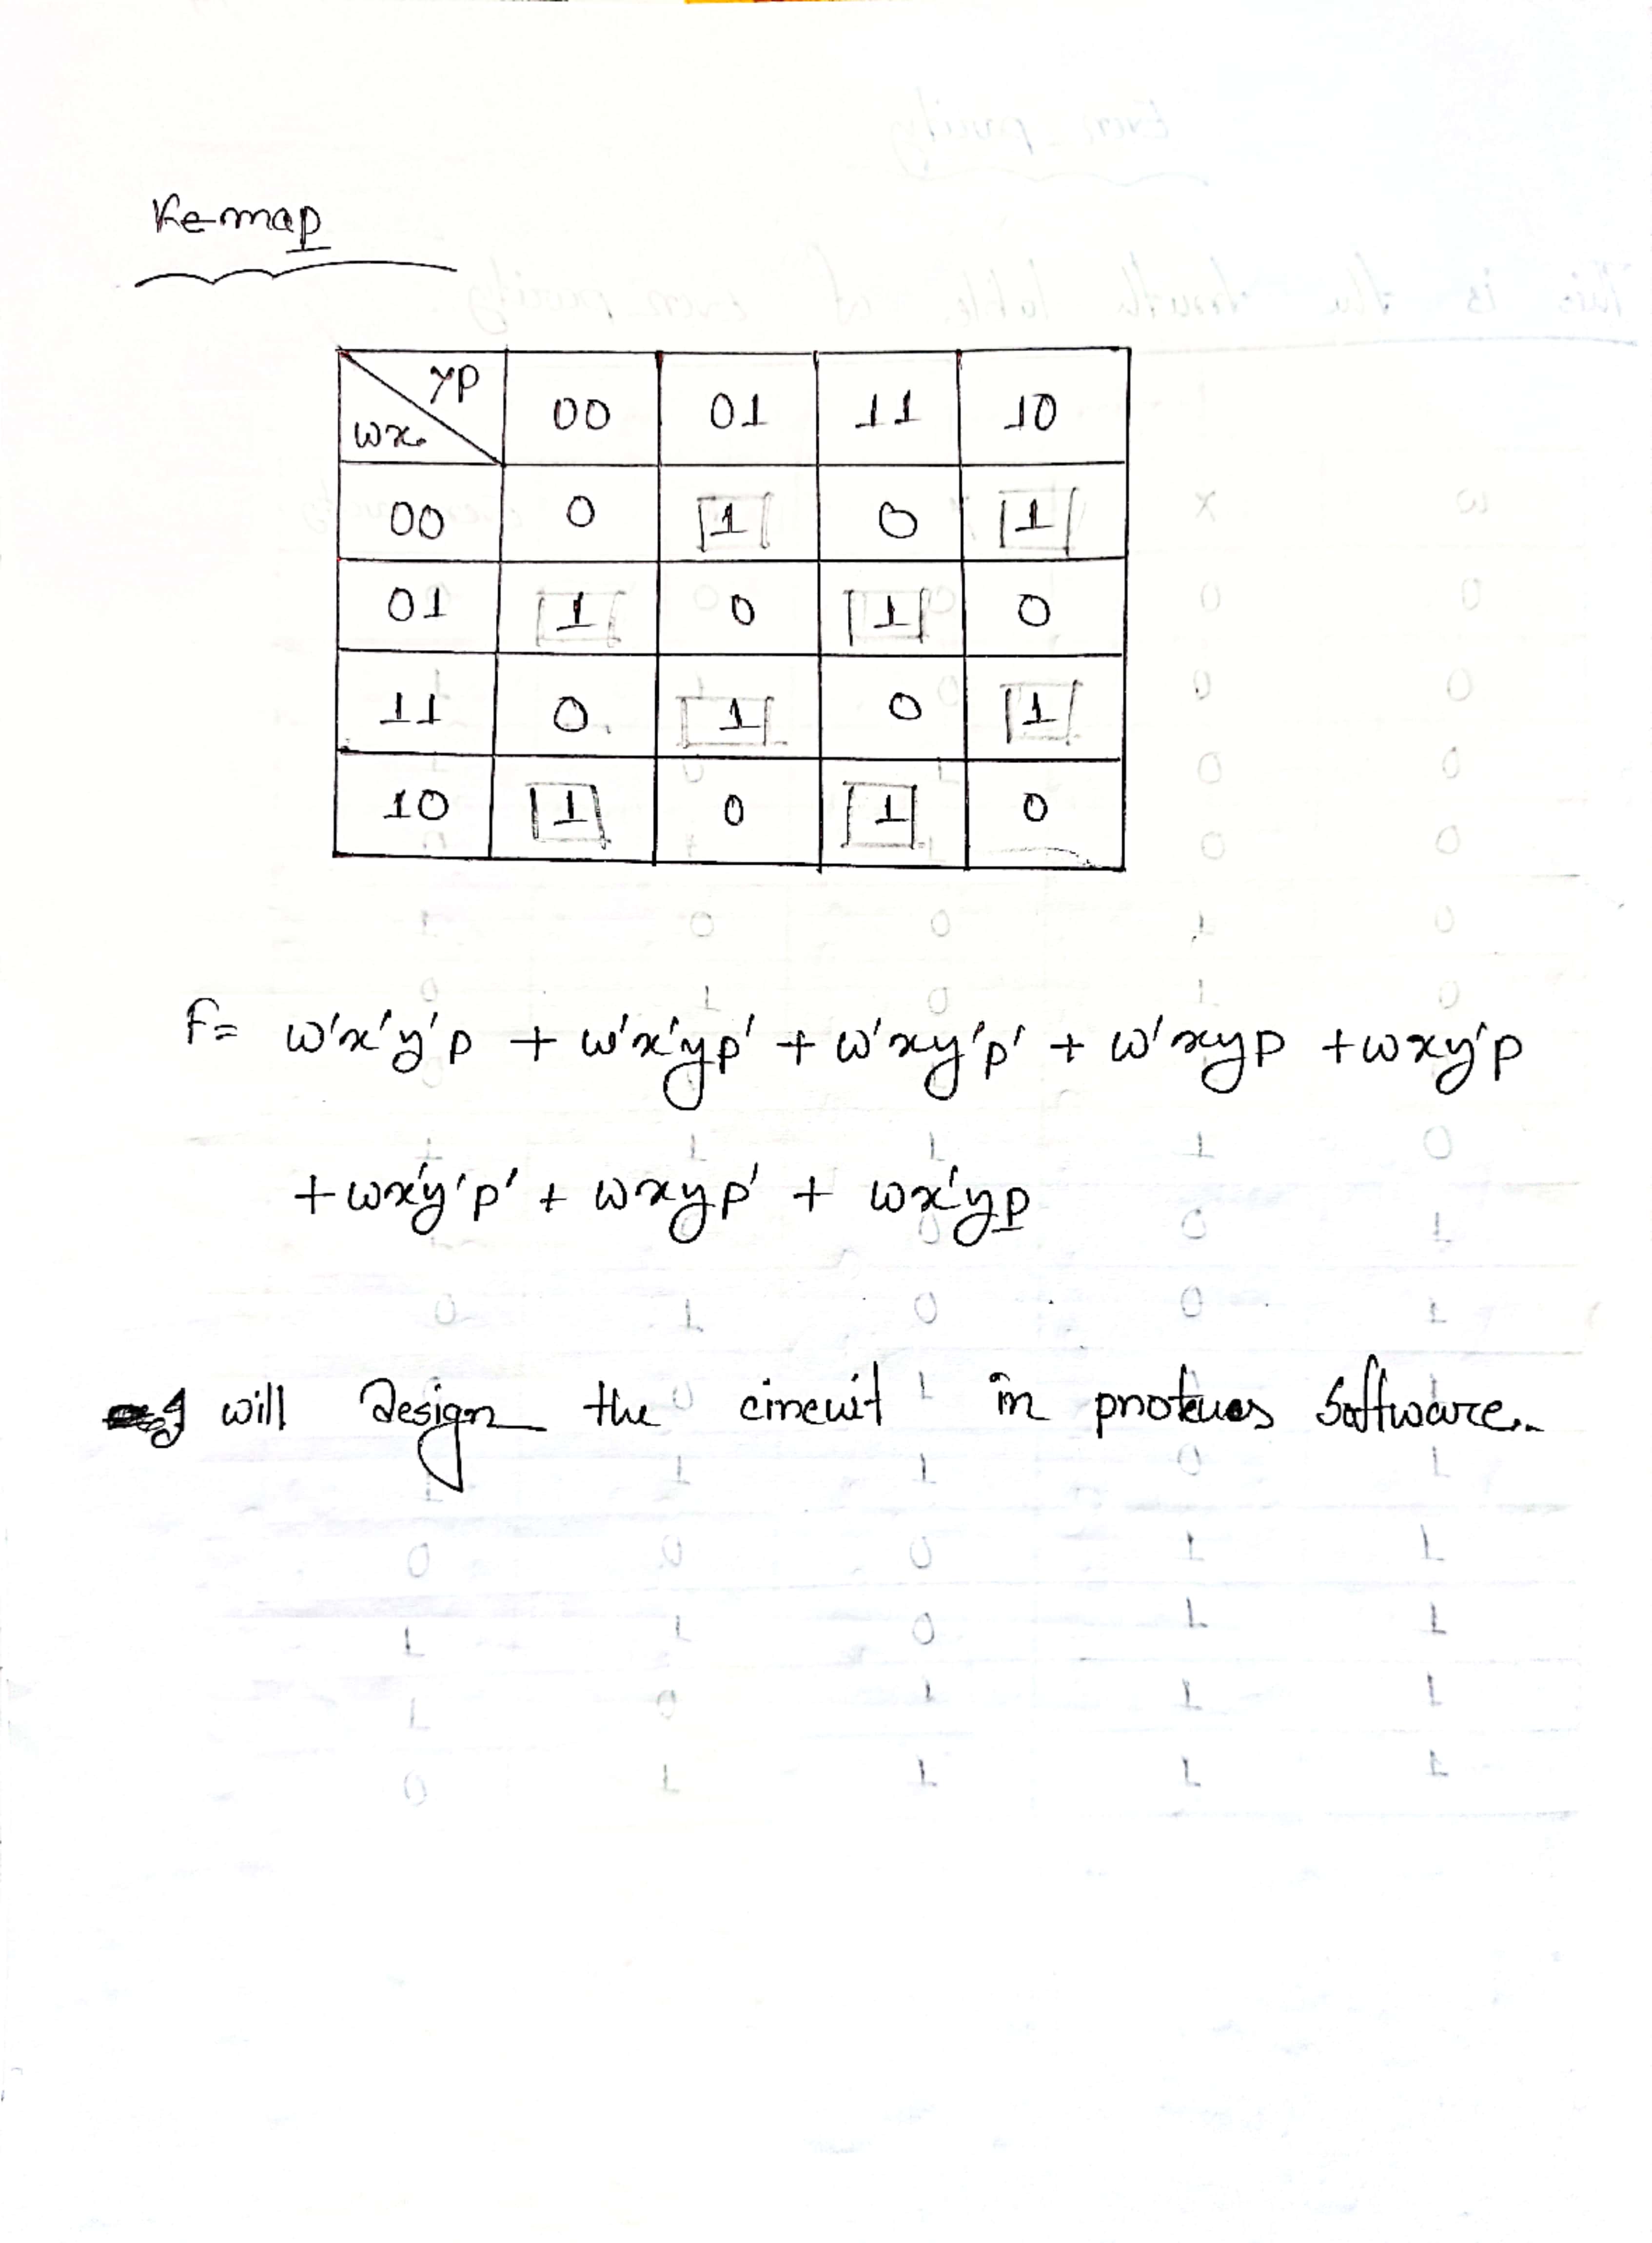 K-map
yp
wx 00 01 11 10
00 0 1 0 1
01 1 0 1 0
11 0 1 0 1
10 1 0 1 0
F= w'x'y'p + w'x'yp' + w'xy'p' + w'xyp + wxy'p
+ wx'y'p' + wxyp' + wx'yp
I will Design the circuit in proteus Software.